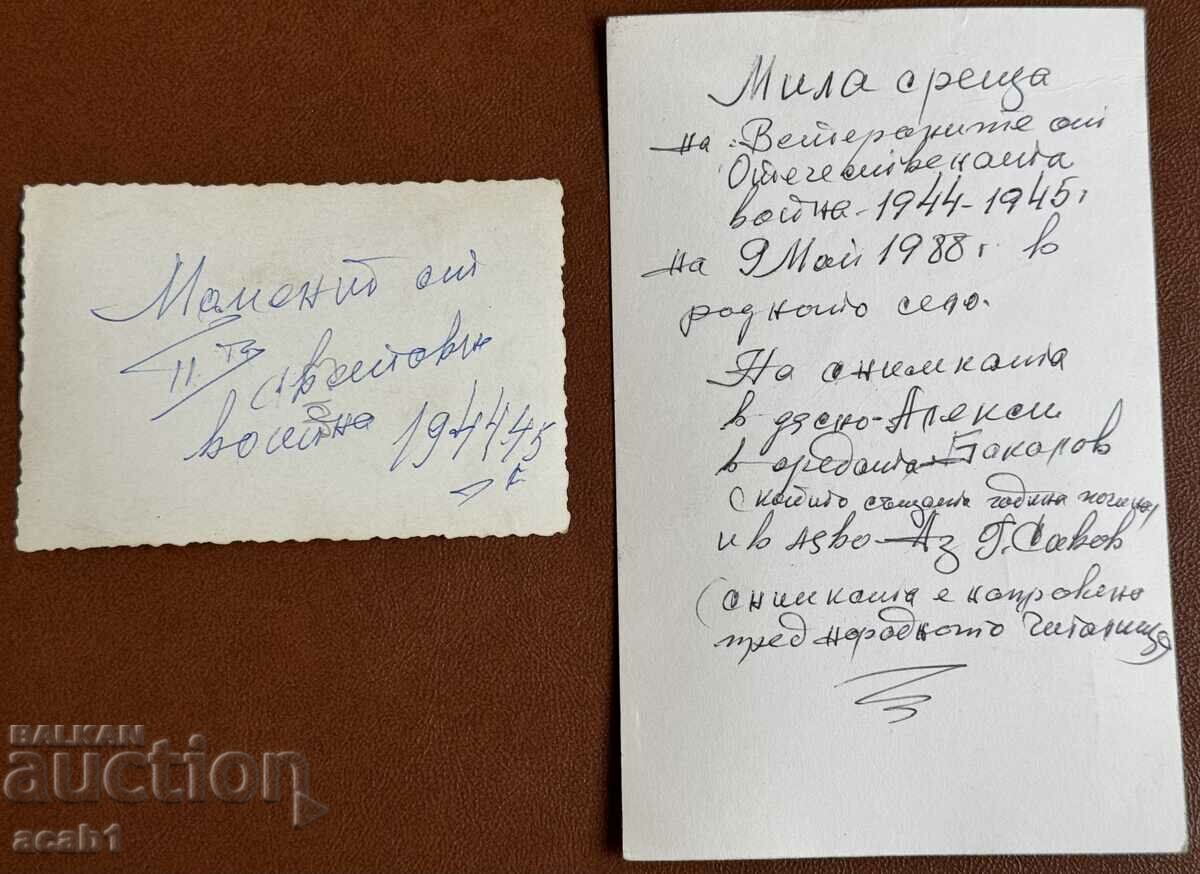 Момент от
II та
световн
война 1944 45
г
Мила среща
на Ветераните от
Отечествената
война - 1944 - 1945 г
на 9 Май 1988 г. в
родното село.
На снимката
в дясно - Алекси
в средата - Бакаров
(който същата година почина)
и в ляво - Аз Г. Савов
(снимката е направена
пред народното Читалище
BALKAN
auction
acab1